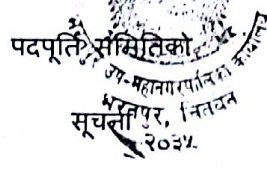 पदपूर्ति समितिको
सूचना
उप-महानगरपालिका कार्यालय
भरतपुर, चितवन
२०३५